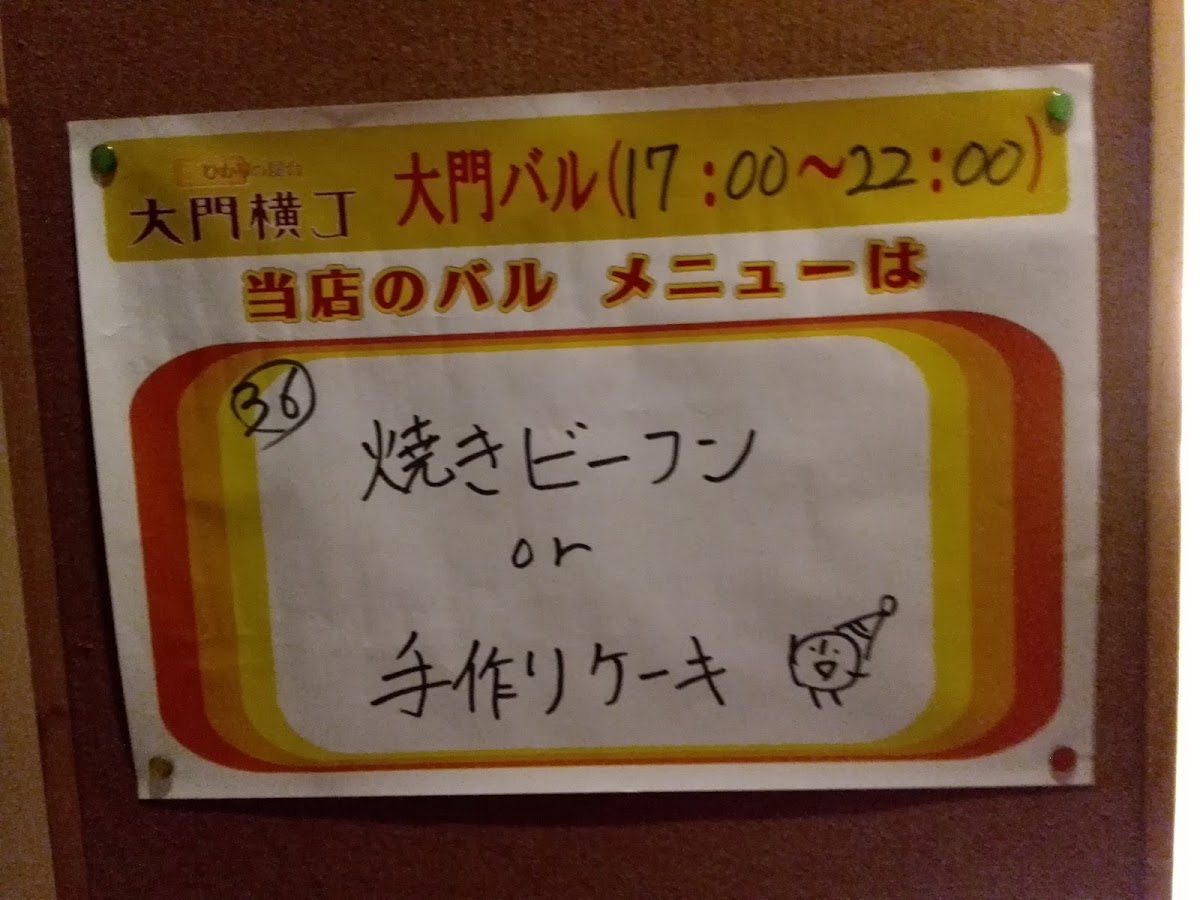 ひかりの屋台
大門横丁
大門バル(17:00～22:00)
当店のバル メニューは
36
焼きビーフン
or
手作りケーキ